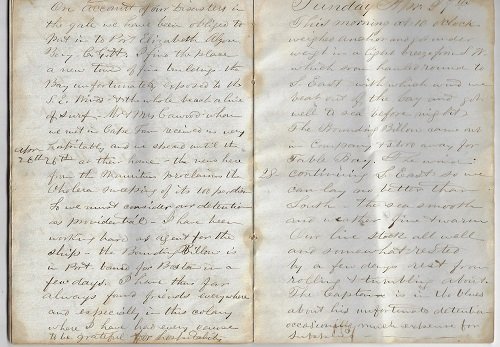 On account of our Disasters in
the gale we have been obliged to
Put in to Port Elizabeth Algoa
Bay C. G Hope I find the place
a new town of fine buildings the
Bay unfortunately exposed to the
S.E. Winds & the whole beach a line
of surf. Mr & Mrs Cawood whom
we met in Cape Town received us very
hospitably and we spend until the
April 26th 26th at their house - the news here
from the Mauritius proclaims the
Cholera sweeping of its 100 per day
So we must consider our detention
as providential - I have been
working hard as agent for the
ships - the Bounding Billow is
in Port bound for Boston in a
few days. I have thus far
always found friends everywhere
and especially in this colony
where I have had every cause
to be grateful for hospitality
Sunday Apr. 27th
This morning at 10 o'clock
weighed anchor and got under
weigh in a light breeze from S W
which soon hauled round to
S. East with which wind we
beat out of the bay and got
well to sea before night
The Bounding Billow came out
in company & stood away for
Table Bay. The wind
28 continuing S. East so we
can lay no better than
South The sea smooth
and weather fine & warm
Our live stock all well
and somewhat rested
by a few days rest from
rolling & tumbling about.
The Captain is in the blues
about his unfortunate detention
occasioning much expense for